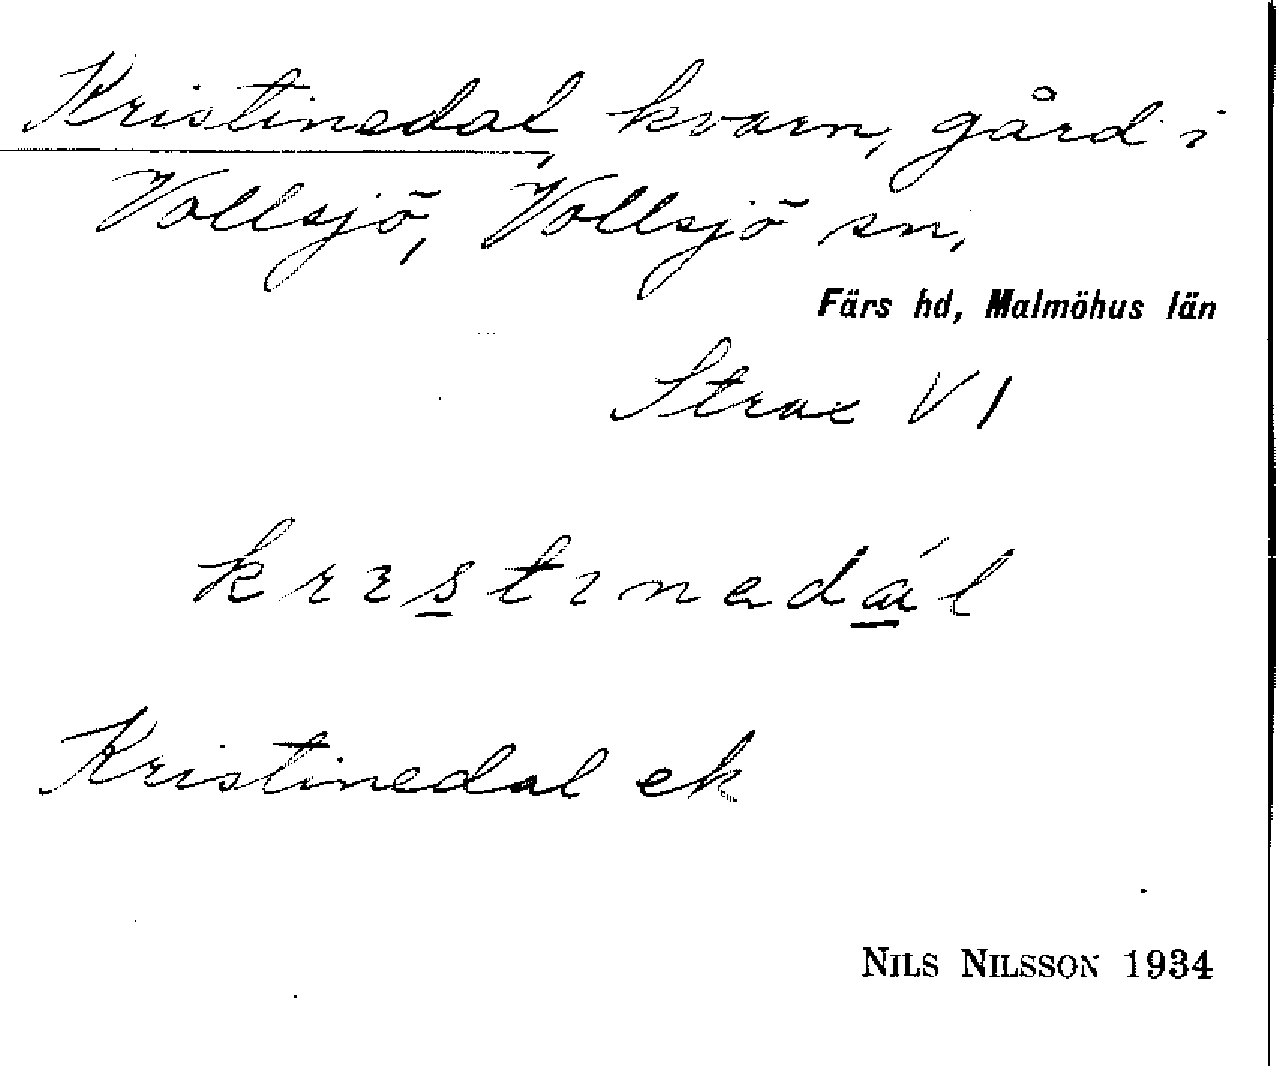 Kristinedal, kvarn, gård i
Vollsjö, Vollsjö sn,
Färs hd, Malmöhus län
Strax V 1
krıstınadál
Kristinedal ek
NILS NILSSON 1934